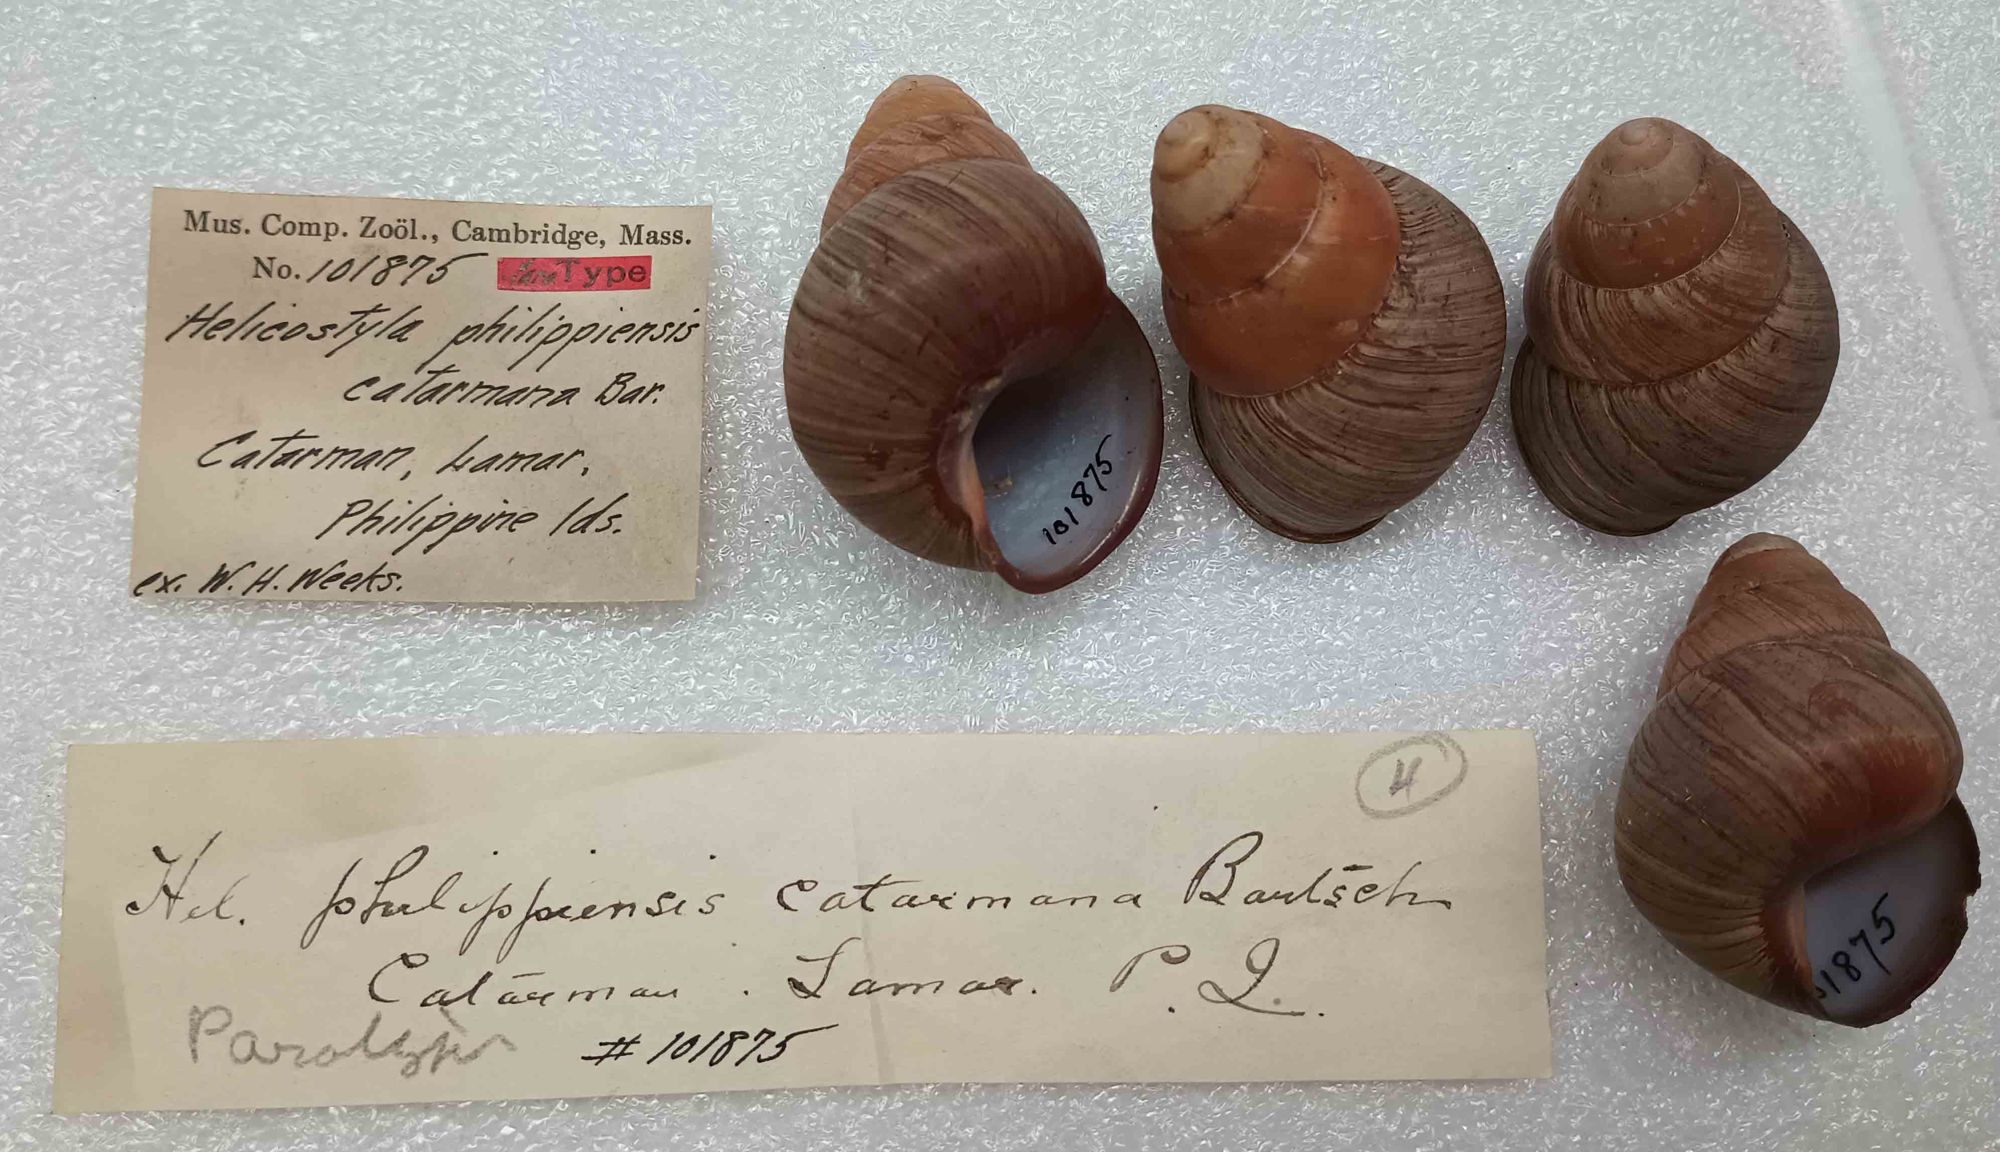 Mus. Comp. Zoöl., Cambridge, Mass.
No. 101875 Type
Helicostyla philippiensis
catarmana Bar.
Catarman, Samar,
Philippine Ids.
ex. W. H. Weeks.
101875
1875
4
Hel. philippiensis catarmana Bartsch
Catarman. Samar. P. I.
Paratype
# 101875